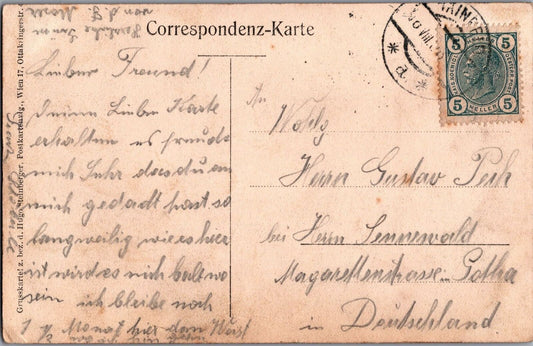 Correspondenz-Karte
Grusskartel z. bez. d. Hugo Steinberger, Postkartenvlg., Wien 17, Ottakringerstr.
von d.
Lieber Freund!
Deine Liebe Karte
erhalten es freuds
mich Sehr das du an
mich gedadt hast so
langweilig wie es hier
ist wird es nich balt wo
sein ich bleibe noch
1 Monat hier dem
5
5
5
5
HELLER
An
Wohlg
Herrn Gustav
bei Herrn Sennewald
Magarettenstrasse Gotha
in Deutschland